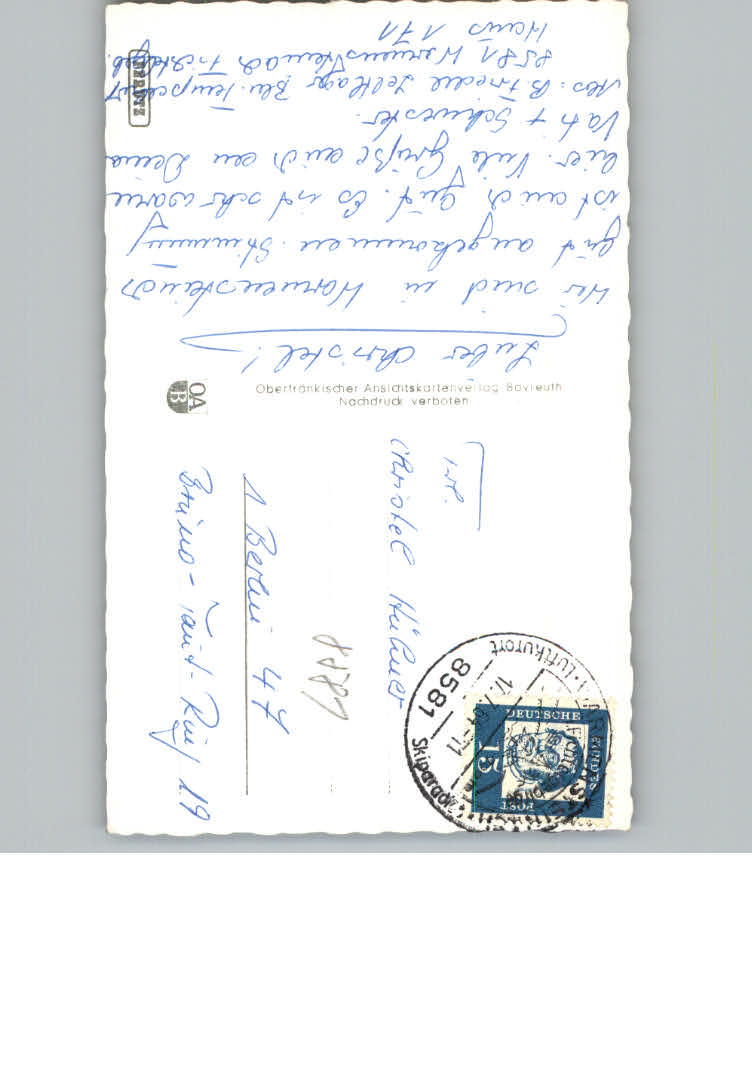 Lieber Christel!
Wir sind in Warmensteinach
gut angekommen. Stimmung
ist auch gut. Es ist sehr warm
hier. Viele Grüße auch an Deine
Vati + Schwester.
Abs: B. Friedel Zeltlager Bln. Tempelhof
8581 Warmensteinach Fichtelgeb.
Haus 171
Oberfränkischer Ansichtskartenverlag Bayreuth
Nachdruck verboten
OA
B
Christel Hübner
1 Berlin 47
Bruno-Taut-Ring 19
8581
Luftkurort
Skiparadies
DEUTSCHE
BUNDES
POST
15